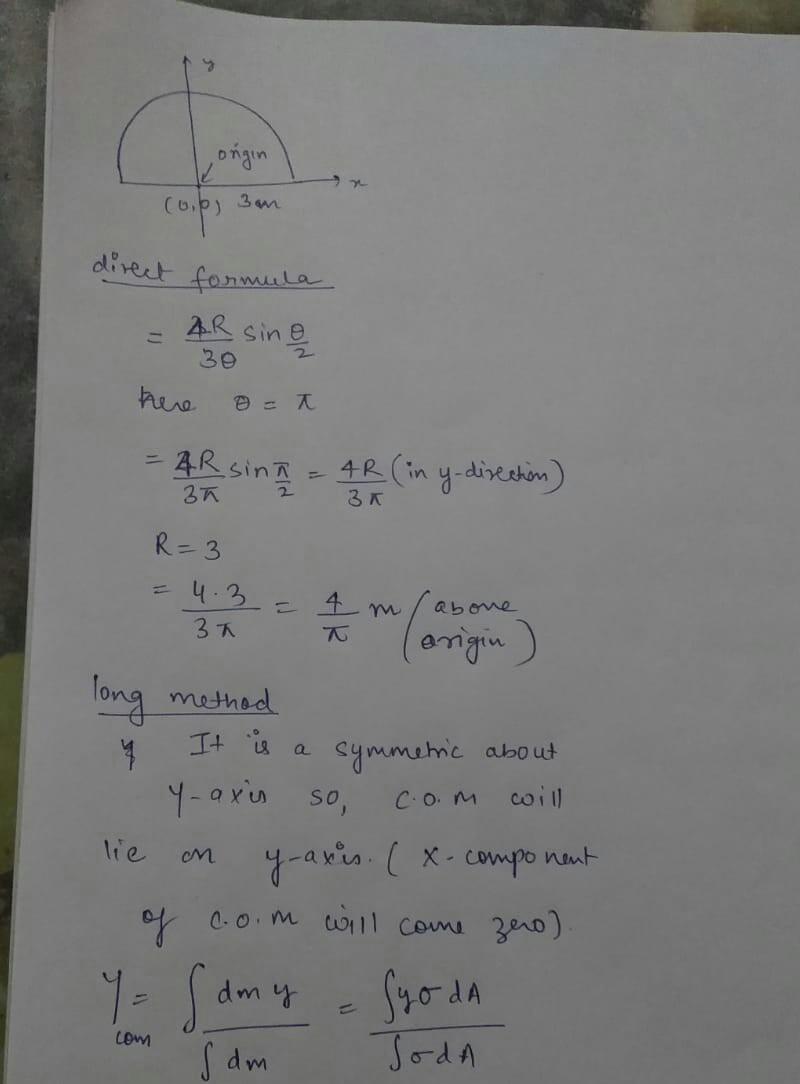 y
origin
x
(0,0) 3m
direct formula
= 4R/3θ sin θ/2
here θ = π
= 4R/3π sin π/2 = 4R/3π (in y-direction)
R = 3
= 4·3/3π = 4/π m (above origin)
long method
It is a symmetric about
y-axis so, C.O.M will
lie on y-axis. ( x-component
of C.O.M will come zero).
Y com = ∫ dm y / ∫ dm = ∫yσdA / ∫σdA